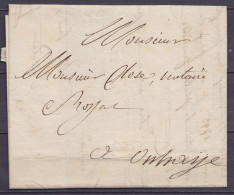 Monsieur
Monsieur Close, notaire
Royal
a